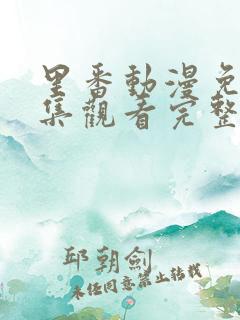 里番動漫免
集觀看完整
邱朝劍
未經同意禁止轉載